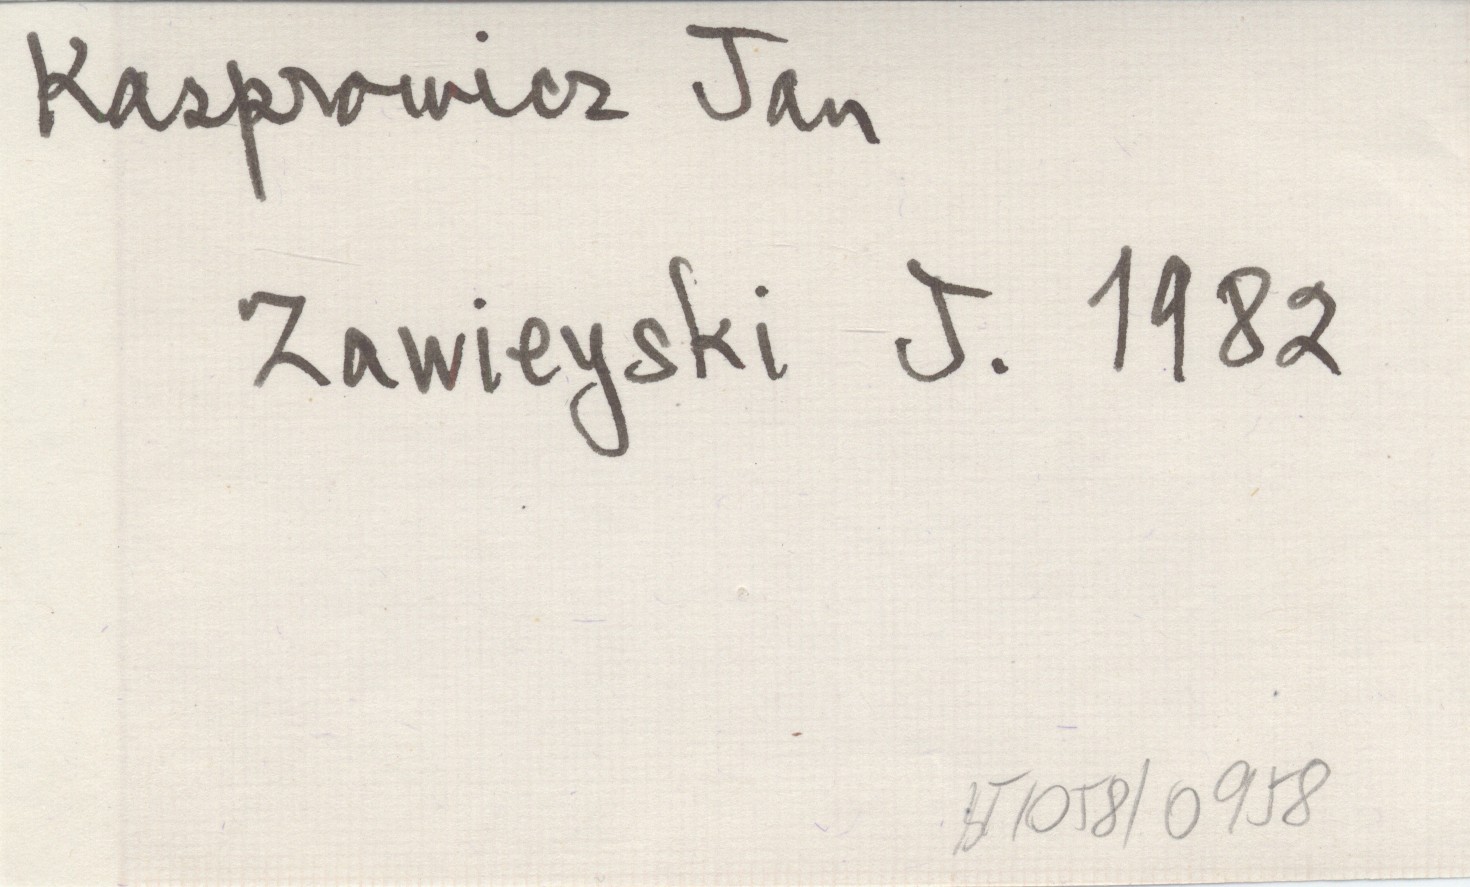 Kasprowicz Jan
Zawieyski J. 1982
/058/0958